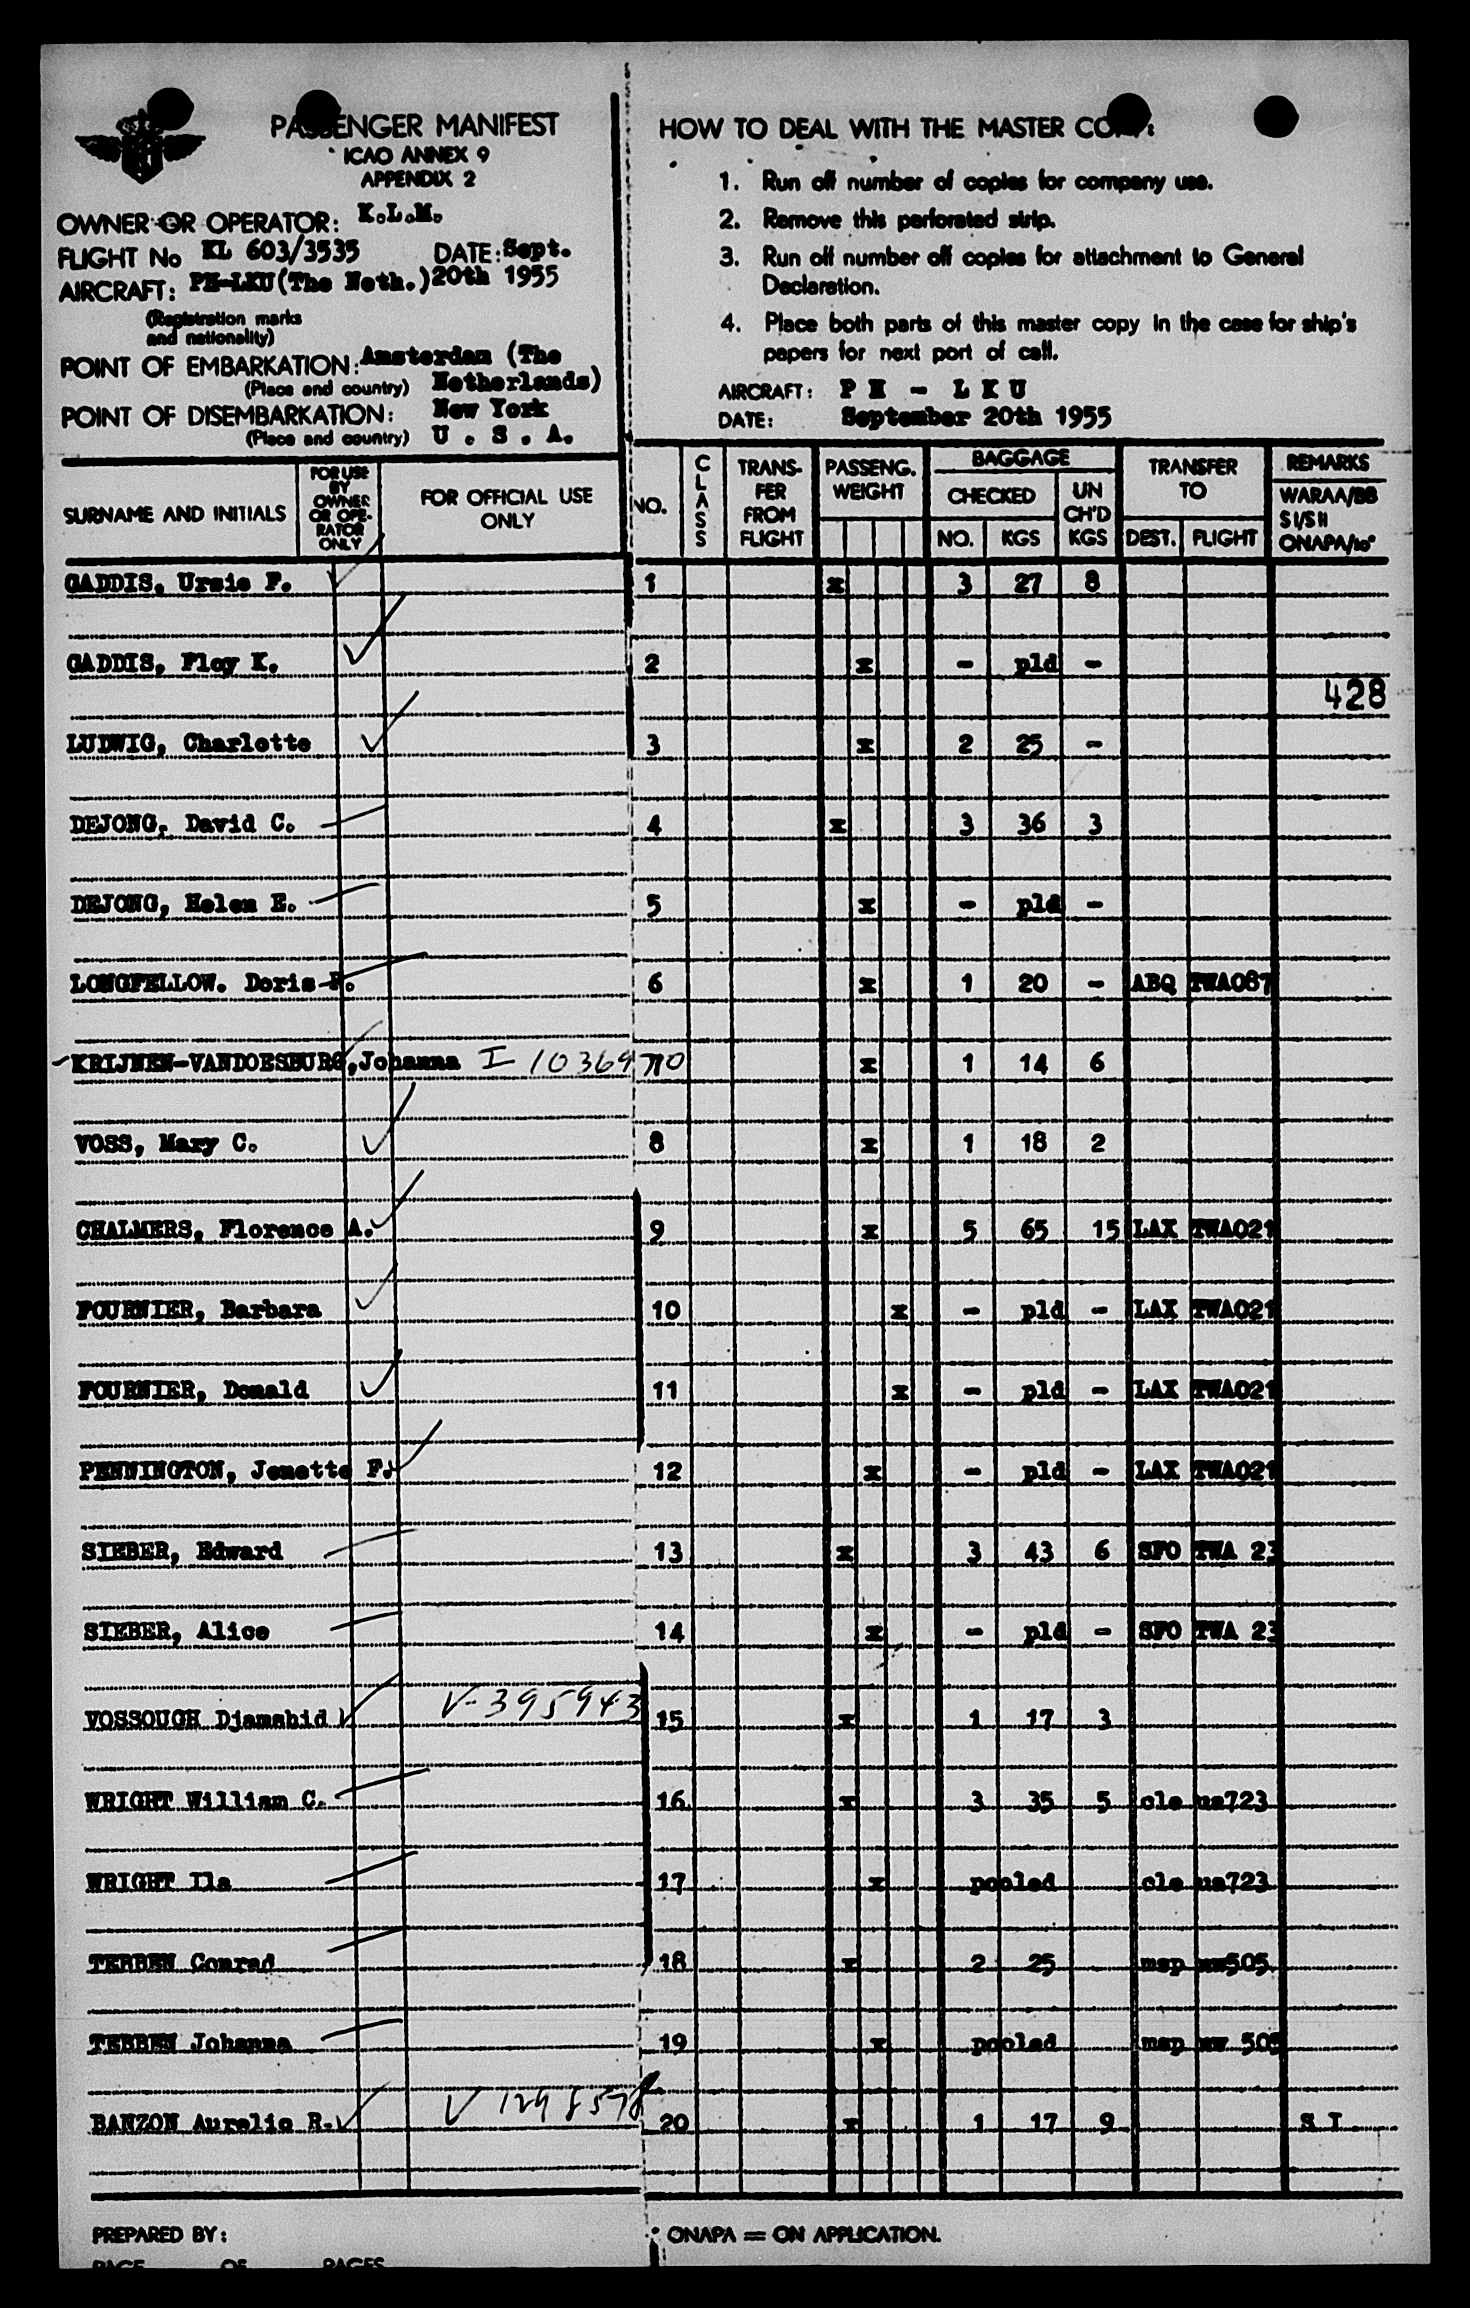 PASSENGER MANIFEST
ICAO ANNEX 9
APPENDIX 2
OWNER OR OPERATOR: K.L.M.
FLIGHT No KL 603/3535 DATE: Sept.
AIRCRAFT: PH-LKU (The Neth.) 20th 1955
(Registration marks
and nationality)
POINT OF EMBARKATION: Amsterdam (The
(Place and country) Netherlands)
POINT OF DISEMBARKATION: New York
(Place and country) U . S . A.
HOW TO DEAL WITH THE MASTER COPY:
1. Run off number of copies for company use.
2. Remove this perforated strip.
3. Run off number off copies for attachment to General
Declaration.
4. Place both parts of this master copy in the case for ship's
papers for next port of call.
AIRCRAFT: P H - L K U
DATE: September 20th 1955
SURNAME AND INITIALS
FOR USE
BY
OWNER
OR OPE-
RATOR
ONLY
FOR OFFICIAL USE
ONLY
NO.
CLASS
TRANS-
FER
FROM
FLIGHT
PASSENG.
WEIGHT
BAGGAGE
CHECKED
NO. KGS
UN
CH'D
KGS
TRANSFER
TO
DEST. FLIGHT
REMARKS
WARAA/BB
SI/SII
ONAPA/to*
GADDIS, Ursie F. 1 x 3 27 8
GADDIS, Floy K. 2 x - pld -
428
LUDWIG, Charlotte 3 x 2 25 -
DEJONG, David C. 4 x 3 36 3
DEJONG, Helen E. 5 x - pld -
LONGFELLOW. Doris F. 6 x 1 20 - ABQ TWA087
KRIJNEN-VANDOESBURG, Johanna I 10369710 7 x 1 14 6
VOSS, Mary C. 8 x 1 18 2
CHALMERS, Florence A. 9 x 5 65 15 LAX TWA021
FOURNIER, Barbara 10 x - pld - LAX TWA021
FOURNIER, Donald 11 x - pld - LAX TWA021
PENNINGTON, Jenette F. 12 x - pld - LAX TWA021
SIEBER, Edward 13 x 3 43 6 SFO TWA 23
SIEBER, Alice 14 x - pld - SFO TWA 23
VOSSOUGH Djamshid V-395943 15 x 1 17 3
WRIGHT William C. 16 x 3 35 5 cle ua723
WRIGHT Ila 17 x pooled cle ua723
TEBBEN Conrad 18 x 2 25 msp nw505
TEBBEN Johanna 19 x pooled msp nw 505
BANZON Aurelio R. V 1298578 20 x 1 17 9 S I
PREPARED BY:
* ONAPA = ON APPLICATION.
PAGE OF PAGES